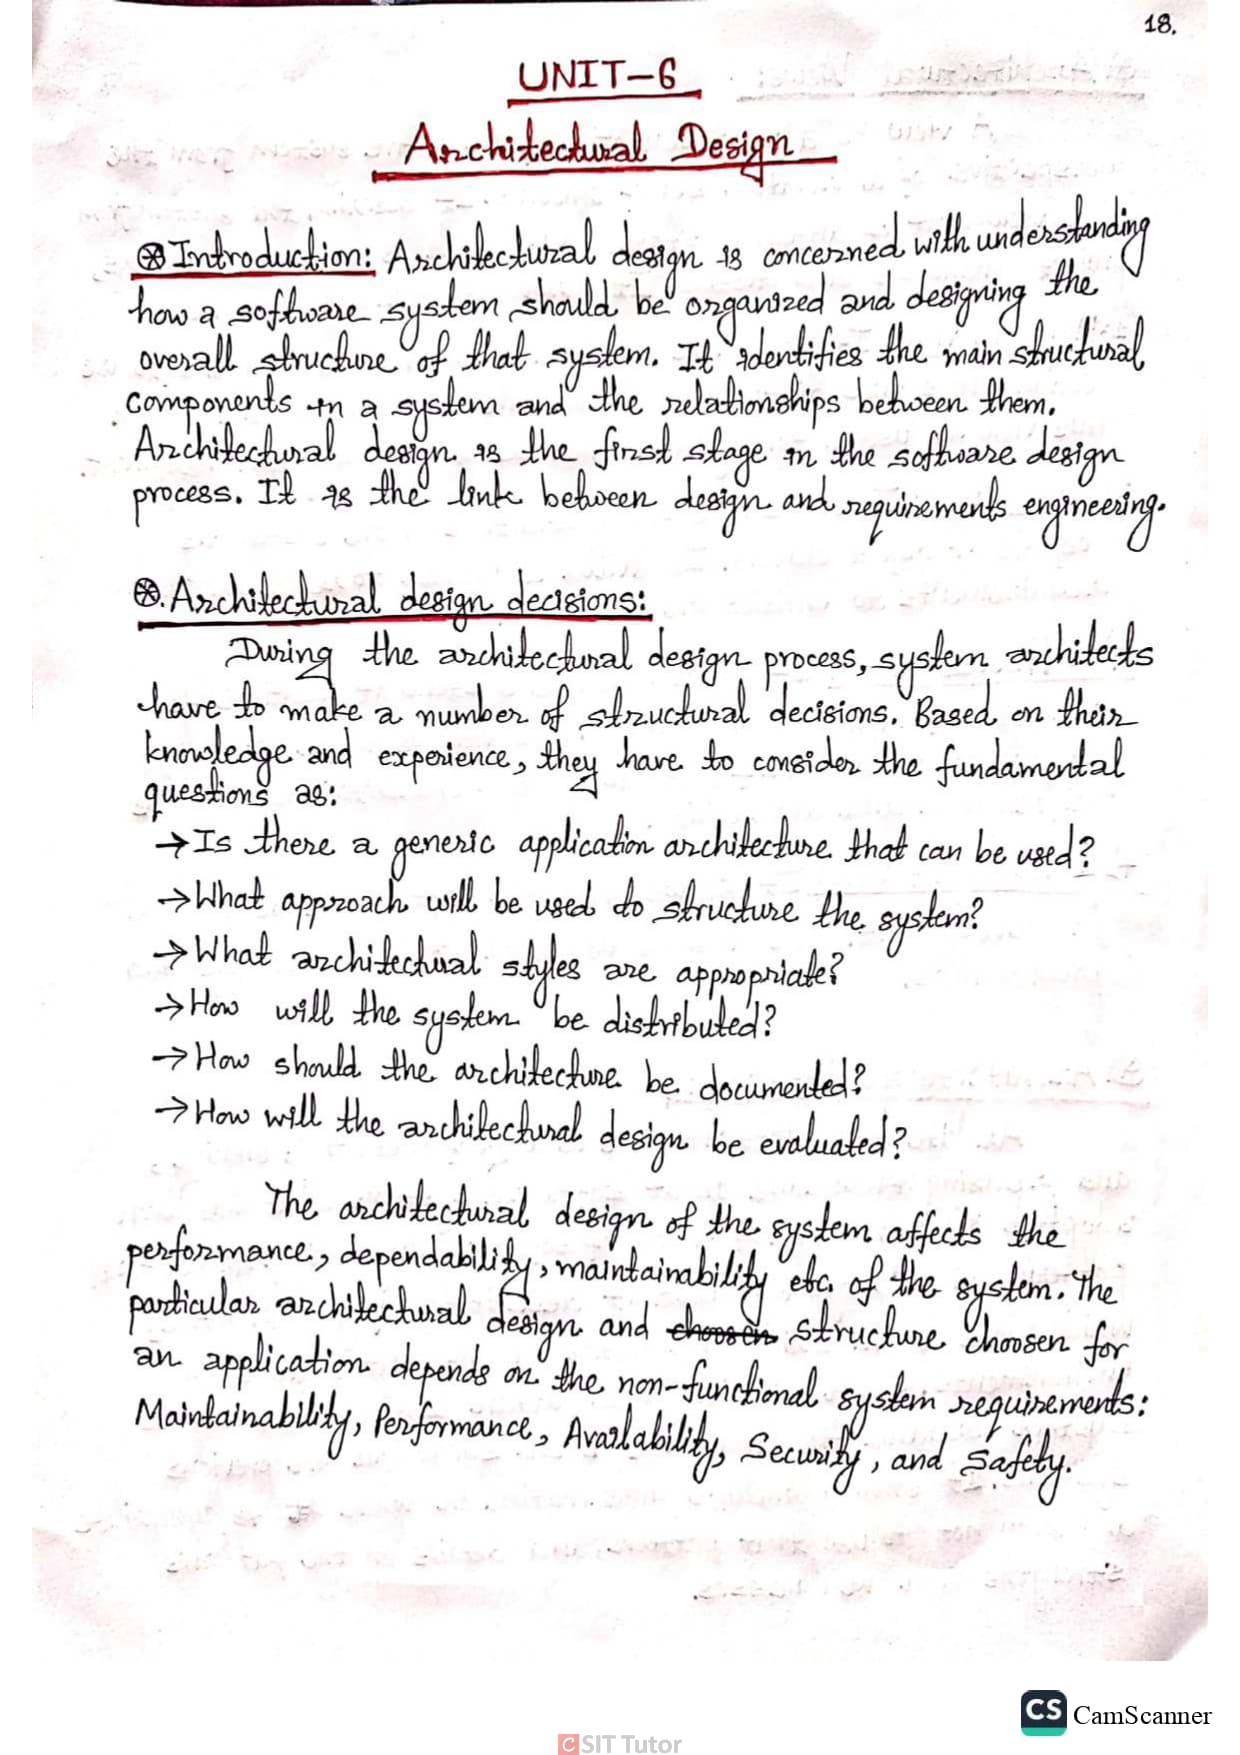 18.
UNIT-6
Architectural Design
⊛ Introduction: Architectural design is concerned with understanding
how a software system should be organized and designing the
overall structure of that system. It identifies the main structural
components in a system and the relationships between them.
Architectural design is the first stage in the software design
process. It is the link between design and requirements engineering.
⊛. Architectural design decisions:
During the architectural design process, system architects
have to make a number of structural decisions. Based on their
knowledge and experience, they have to consider the fundamental
questions as:
→ Is there a generic application architecture that can be used?
→ What approach will be used to structure the system?
→ What architectural styles are appropriate?
→ How will the system be distributed?
→ How should the architecture be documented?
→ How will the architectural design be evaluated?
The architectural design of the system affects the
performance, dependability, maintainability etc. of the system. The
particular architectural design and choosen structure choosen for
an application depends on the non-functional system requirements:
Maintainability, Performance, Availability, Security, and Safety.
CS CamScanner
CSIT Tutor